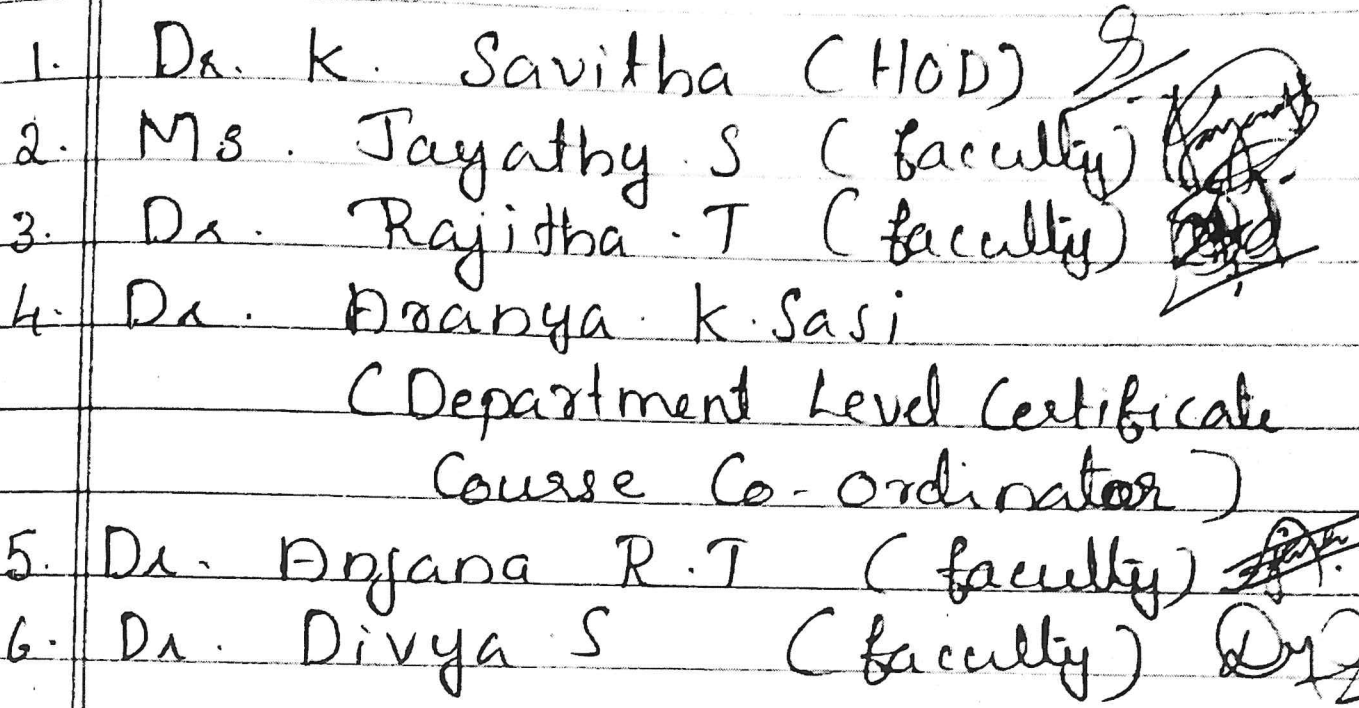 1. Dr. K. Savitha (HOD)
2. Ms. Jayathy S (faculty)
3. Dr. Rajitha. T (faculty)
4. Dr. Aranya. K. Sasi
(Department Level Certificate
Course Co-ordinator)
5. Dr. Anjana R.T (faculty)
6. Dr. Divya S (faculty)